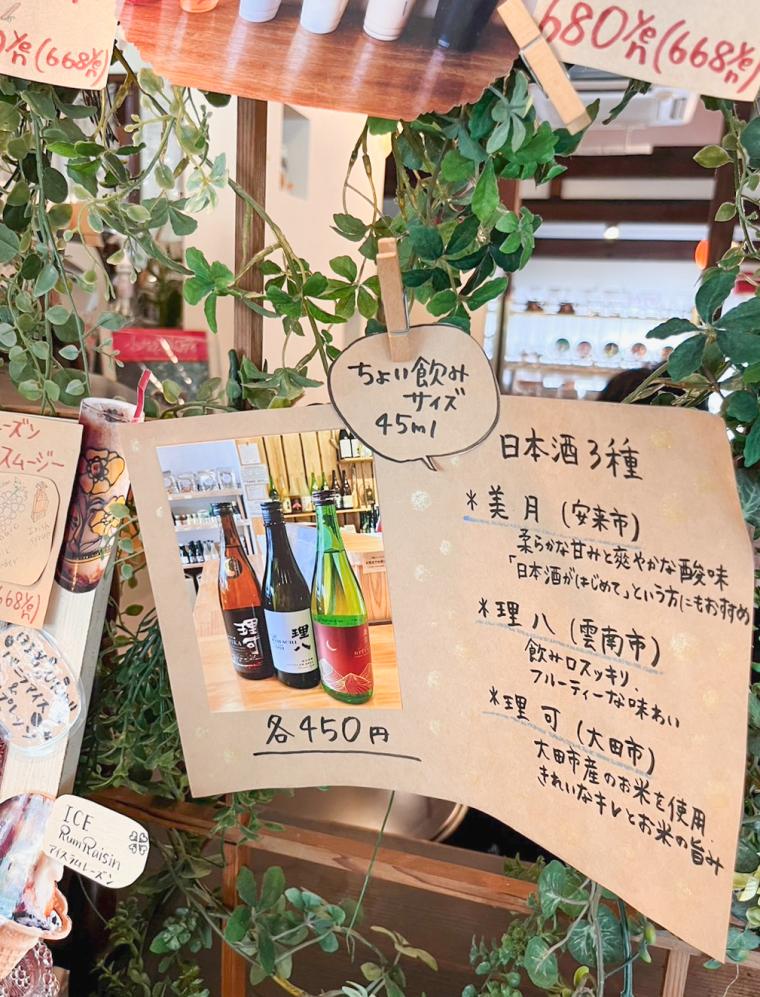 680yen(668yen)
ちょい飲み
サイズ
45ml
日本酒3種
*美月（安来市）
柔らかな甘みと爽やかな酸味
「日本酒がはじめて」という方にもおすすめ
*理八（雲南市）
飲み口スッキリ.
フルーティーな味わい
*理可（大田市）
大田市産のお米を使用.
きれいなキレとお米の旨み
各450円
理可
理八
スムージー
668
ICE
RumRaisin
アイスラムレーズン